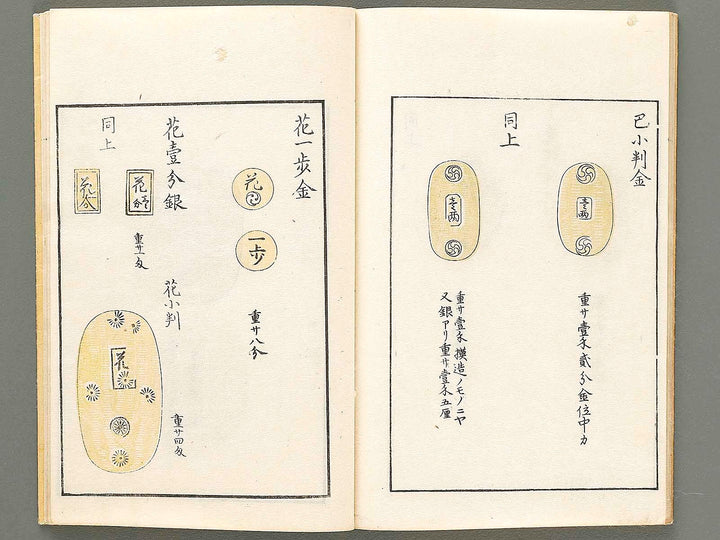 巴小判金
壱両
重サ壹匁貳分金位中カ
同上
壱両
重サ壹匁摸造ノモノニヤ
又銀アリ重サ壹匁五厘
花一歩金
花
一歩
重サ八分
花壹分銀
花壱分
同上
花分
花小判
花
重サ四匁